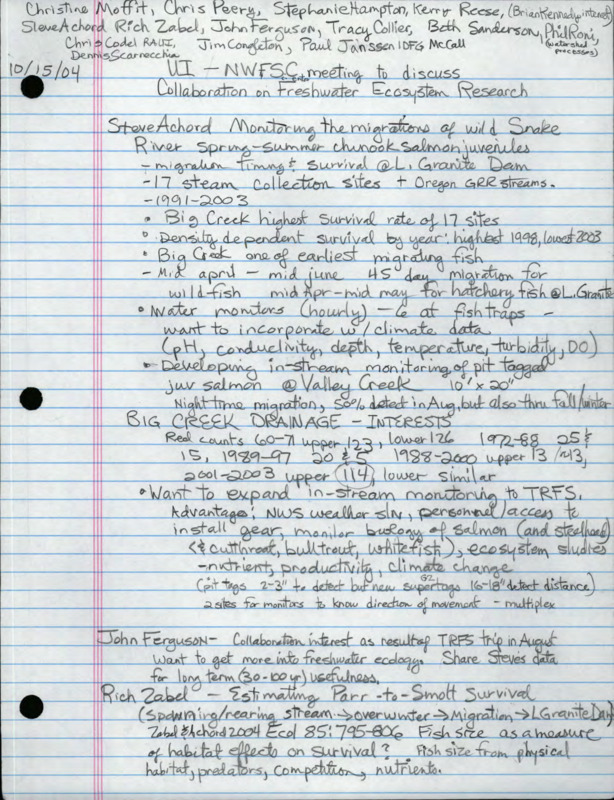 Christine Moffit, Chris Peery, Stephanie Hampton, Kerry Reese, (Brian Kennedy-interest)
Steve Achord Rich Zabel, John Ferguson, Tracy Collier, Beth Sanderson, Phil Roni,
(watershed processes)
Chris Codel RAUI, Jim Congleton, Paul Janssen IDFG McCall
Dennis Scarnecchia
10/15/04 UI - NWFSC meeting to discuss
Collaboration on Freshwater Ecosystem Research
Steve Achord Monitoring the migrations of wild Snake
River spring-summer chinook salmon juveniles
- migration timing & survival @ L. Granite Dam
- 17 steam collection sites + Oregon GRR streams.
- 1991-2003
• Big Creek highest survival rate of 17 sites
• Density dependent survival by year: highest 1998, lowest 2003
• Big Creek one of earliest migrating fish
- Mid april - mid june 45 day migration for
wild fish mid Apr - mid may for hatchery fish @ L. Granite
• Water monitors (hourly) - 6 at fish traps -
want to incorporate w/ climate data
(pH, conductivity, depth, temperature, turbidity, DO)
• Developing in-stream monitoring of pit tagged
juv salmon @ Valley Creek 10" x 20"
Night time migration, 50% detect in Aug, but also thru fall/winter
BIG CREEK DRAINAGE - INTERESTS
Red counts 60-71 upper 123, lower 126 1972-88 25 &
15, 1989-97 20 & 5 1988-2000 upper 13 /~13,
2001-2003 upper 114, lower similar
• Want to expand in-stream monitoring to TRFS.
Advantage: NWS weather stn, personnel/access to
install gear, monitor biology of salmon (and steelhead)
(& cutthroat, bull trout, whitefish), ecosystem studies
- nutrient, productivity, climate change
(pit tags 2-3" to detect but new supertags 16-18" detect distance)
2 sites for monitors to know direction of movement - multiplex
John Ferguson - Collaboration interest as result of TRFS trip in August
Want to get more into freshwater ecology. Share Steves data
for long term (30-100 yr) usefulness.
Rich Zabel - Estimating Parr-to-Smolt Survival
(spawning/rearing stream → overwinter → Migration → L Granite Dam)
Zabel & Achord 2004 Ecol 85: 795-806 Fish size as a measure
of habitat effects on survival? Fish size from physical
habitat, predators, competition, nutrients.